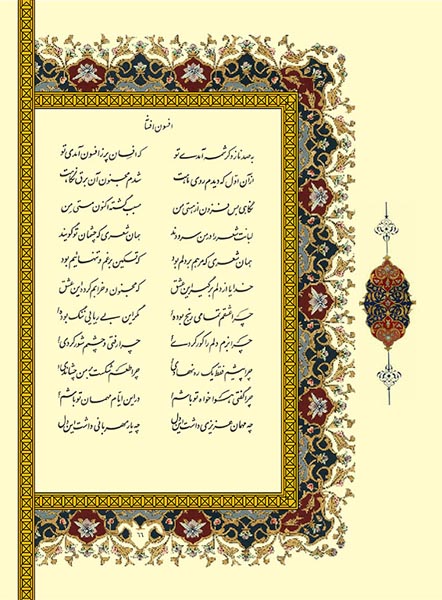 افسون افشا
به صد ناز و کرشمه آمدی تو که افسان پر ز افسون آمدی تو
از آن اول که دیدم روی ماهت شدم مجنون آن برق نگاهت
نگاهی بس فزون از هستی من سبب گشته اکنون مستی من
لبانت شعر را در من سرودند همان شعری که چشمان تو گویند
همان شعری که مرهم بر دلم بود که تسکین بر غم و تنهاییم بود
خدایا از دلم برگیر این عشق که مجنون و خرابم کرده این عشق
چرا عشقم تمامی رنج بوده؟ مگر این بی ریایی ننگ بوده؟
چرا دلم را کور کردی؟ چرا رفتی و چشم شور کردی؟
چرا فقط یک چرا طعم شکست
چرا گفتی هواخواه تو باشم؟ در این ایام مهمان تو باشم!
چه مهمان عزیزی داشت این دل چه یار مهربانی داشت این دل